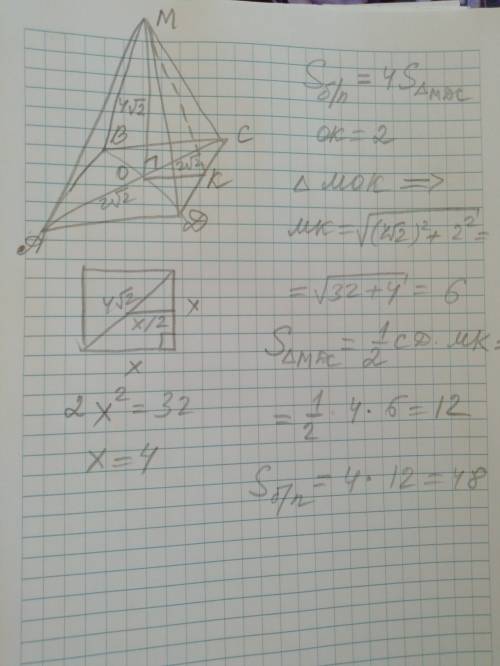 M
4√2
B
C
O
2√2
K
2√2
A
D
4√2
x
x/2
x
2x² = 32
x = 4
S б/п = 4S△MДC
OK = 2
△ MOK ⟹
MK = √((4√2)² + 2²) =
= √(32 + 4) = 6
S△MДC = 1/2 CД · MK =
= 1/2 · 4 · 6 = 12
S б/п = 4 · 12 = 48